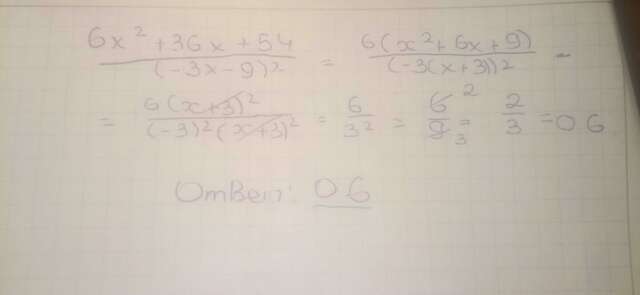 6x² + 36x + 54 / (-3x - 9)² = 6(x² + 6x + 9) / (-3(x + 3))² =
= 6(x+3)² / (-3)²(x+3)² = 6 / 3² = 6 2 / 9 3 = 2 / 3 = 0 6
Ответ: 0 6